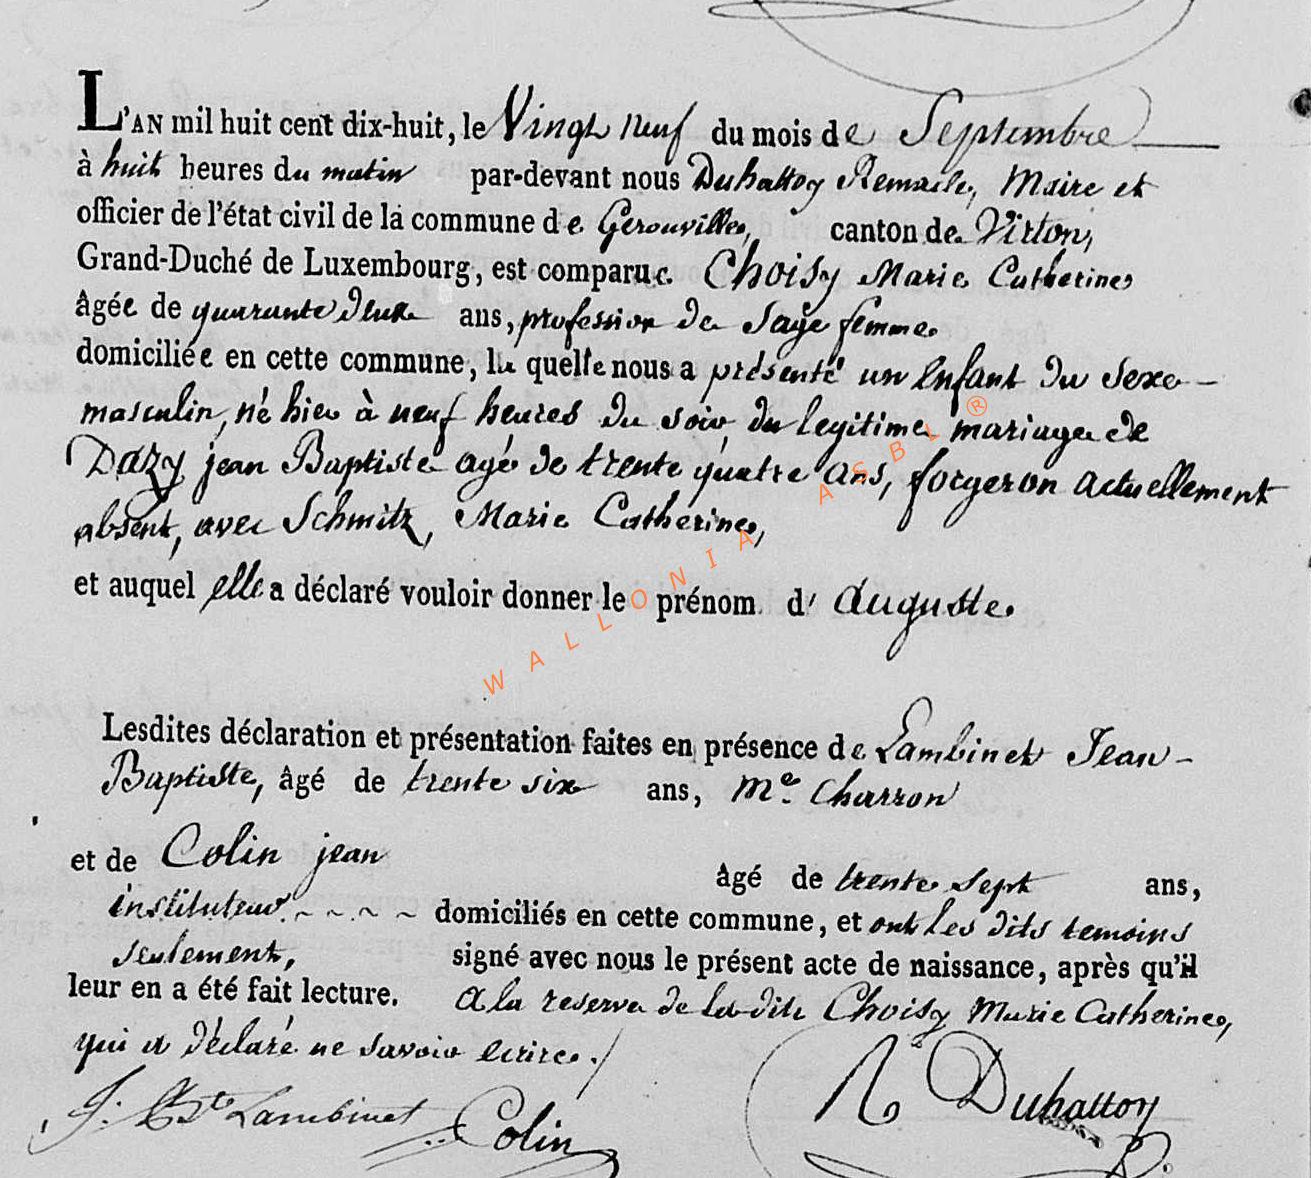 L'AN mil huit cent dix-huit, le Vingt neuf du mois de Septembre
à huit heures du matin par-devant nous Duhattoy Remacle, Maire et
officier de l'état civil de la commune de Gerouville, canton de Virton,
Grand-Duché de Luxembourg, est comparue Choisy Marie Catherine
âgée de quarante deux ans, profession de Sage femme
domiciliée en cette commune, la quelle nous a présenté un Enfant du Sexe -
masculin, né hier à neuf heures du soir, du legitime mariage de
Dazy jean Baptiste agé de trente quatre ans, forgeron actuellement
absent, avec Schmitz, Marie Catherine,
et auquel elle a déclaré vouloir donner le prénom d' Auguste.
WALLONIA ASBL ®
Lesdites déclaration et présentation faites en présence de Lambinet Jean -
Baptiste, âgé de trente six ans, Me. Charron
et de Colin jean âgé de trente sept ans,
instituteur ~ ~ ~ ~ domiciliés en cette commune, et ont les dits temoins
seulement, signé avec nous le présent acte de naissance, après qu'il
leur en a été fait lecture. A la reserve de la dite Choisy Marie Catherine,
qui a déclaré ne savoir écrire.
J. Bte Lambinet Colin R Duhattoy